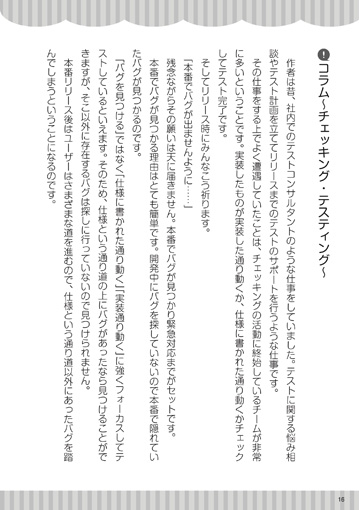 コラム～チェッキング・テスティング～
作者は昔、社内でのテストコンサルタントのような仕事をしていました。テストに関する悩み相
談やテスト計画を立ててリリースまでのテストのサポートを行うような仕事です。
その仕事をする上でよく遭遇していたことは、チェッキングの活動に終始しているチームが非常
に多いということです。実装したものが実装した通り動くか、仕様に書かれた通り動くかチェック
してテスト完了です。
そしてリリース時にみんなこう祈ります。
「本番でバグが出ませんように……」
残念ながらその願いは天に届きません。本番でバグが見つかり緊急対応までがセットです。
本番でバグが見つかる理由はとても簡単です。開発中にバグを探していないので本番で隠れてい
たバグが見つかるのです。
「バグを見つける」ではなく「仕様に書かれた通り動く」「実装通り動く」に強くフォーカスしてテ
ストしているといえます。そのため、仕様という通り道の上にバグがあったなら見つけることがで
きますが、そこ以外に存在するバグは探しに行っていないので見つけられません。
本番リリース後はユーザーはさまざまな道を進むので、仕様という通り道以外にあったバグを踏
んでしまうということになるのです。
16